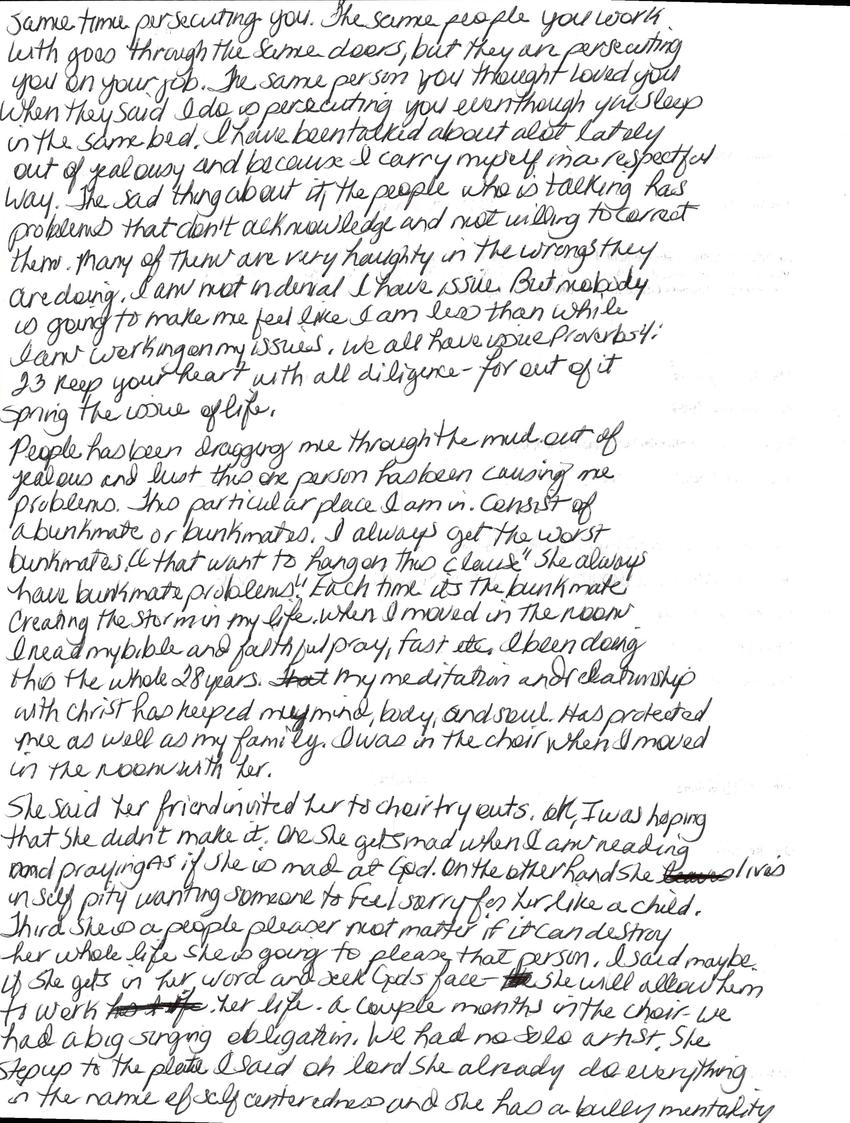 same time persecuting you. The same people you work
with goes through the same doors, but they are persecuting
you on your job. The same person you thought loved you
when they said I do is persecuting you eventhough you sleep
in the same bed. I have been talked about alot lately
out of jealousy and because I carry myself in a respectful
way. The sad thing about it, the people who is talking has
problems that don't acknowledge and not willing to correct
them. Many of them are very haughty in the wrongs they
are doing. I am not in denial I have issue. But nobody
is going to make me feel like I am less than while
I am working on my issues. We all have issue Proverbs 4:
23 Keep your heart with all diligence - for out of it
spring the issue of life.
People has been dragging me through the mud out of
jealous and lust this one person has been causing me
problems. This particular place I am in. Consist of
a bunkmate or bunkmates. I always get the worst
bunkmates. "that want to hang on this clause" She always
have bunkmate problems!" Each time its the bunkmate
Creating the storm in my life. When I moved in the room
I read my bible and faithful pray, fast etc. I been doing
this the whole 28 years. that My meditation and relationship
with Christ has keeped my mind, body, and soul. Has protected
me as well as my family. I was in the choir when I moved
in the room with her.
She said her friend invited her to choir try outs. ok, I was hoping
that she didn't make it. One she gets mad when I am reading
and praying As if she is mad at God. On the other hand she lives
in self pity wanting someone to feel sorry for her like a child.
Third she is a people pleaser not matter if it can destroy
her whole life she is going to please that person. I said maybe
if she gets in her word and seek Gods face - she will allow him
to work her life. A couple months in the choir - we
had a big singing obligation. We had no solo artist. She
step up to the plate I said oh lord she already do everything
in the name of self centeredness and she has a bully mentality